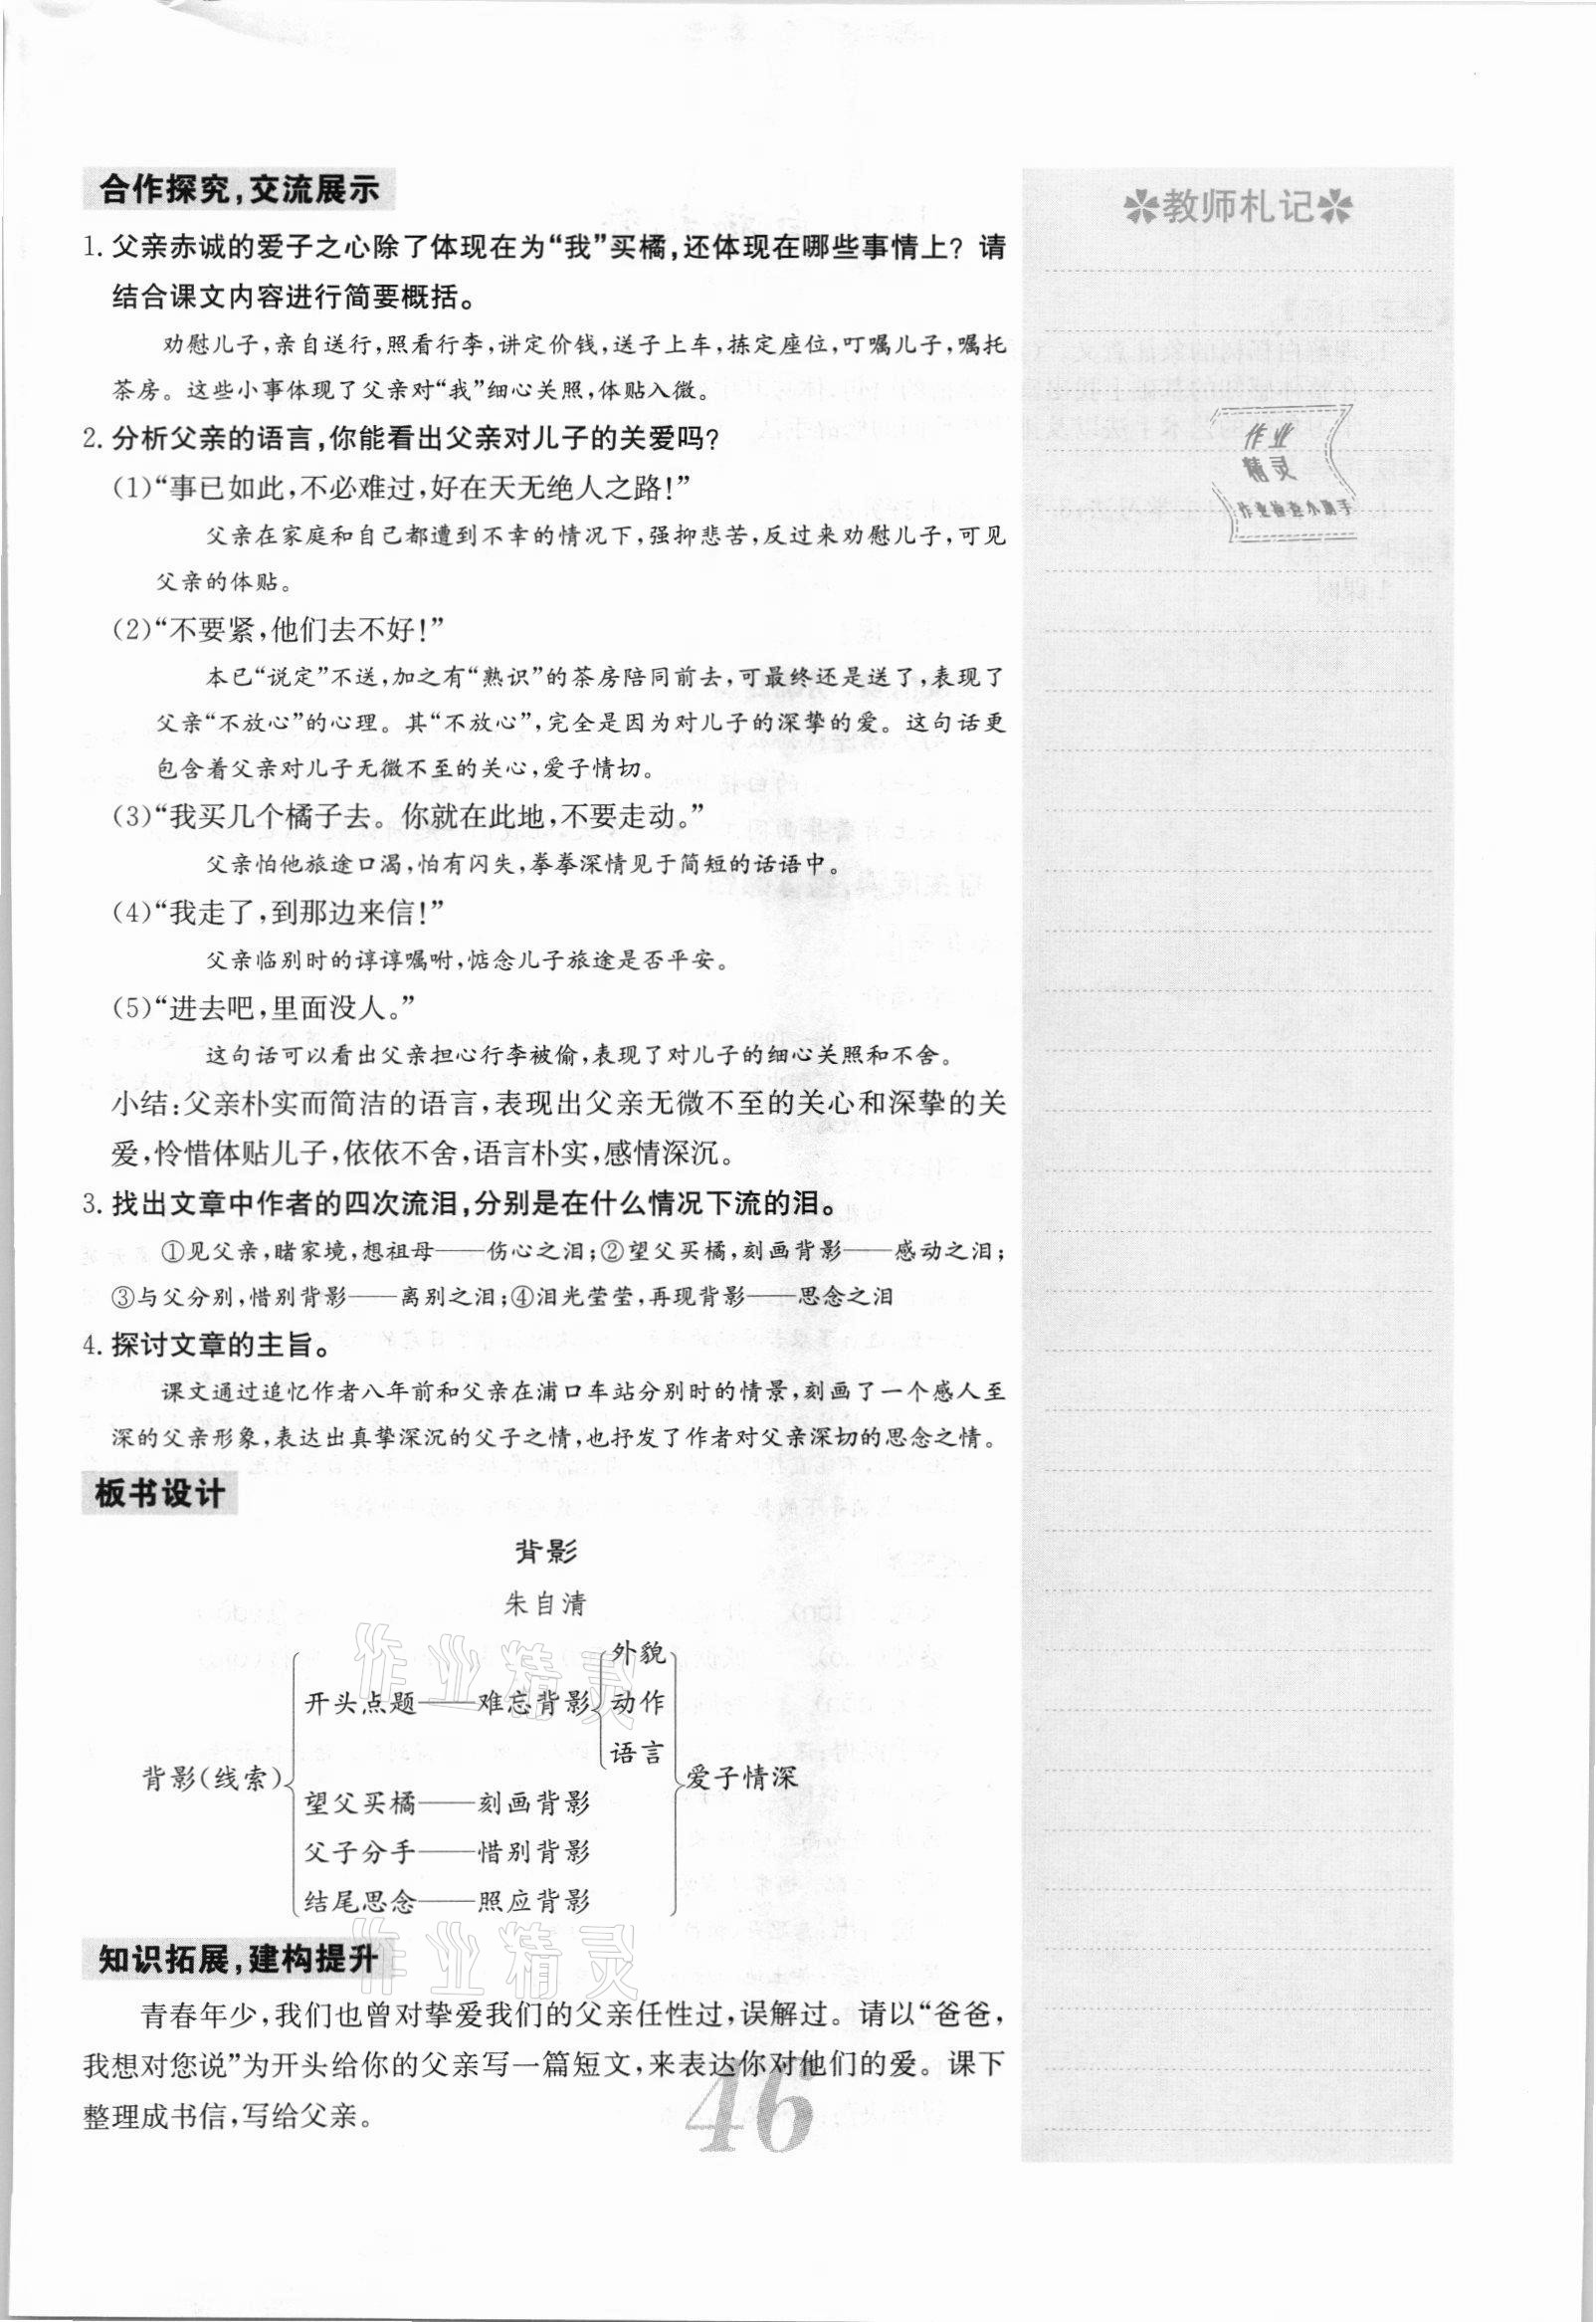 合作探究,交流展示
✽教师札记✽
1. 父亲赤诚的爱子之心除了体现在为“我”买橘,还体现在哪些事情上？请
结合课文内容进行简要概括。
劝慰儿子,亲自送行,照看行李,讲定价钱,送子上车,拣定座位,叮嘱儿子,嘱托
茶房。这些小事体现了父亲对“我”细心关照,体贴入微。
2. 分析父亲的语言,你能看出父亲对儿子的关爱吗?
(1)“事已如此,不必难过,好在天无绝人之路!”
父亲在家庭和自己都遭到不幸的情况下,强抑悲苦,反过来劝慰儿子,可见
父亲的体贴。
(2)“不要紧,他们去不好!”
本已“说定”不送,加之有“熟识”的茶房陪同前去,可最终还是送了,表现了
父亲“不放心”的心理。其“不放心”,完全是因为对儿子的深挚的爱。这句话更
包含着父亲对儿子无微不至的关心,爱子情切。
(3)“我买几个橘子去。你就在此地,不要走动。”
父亲怕他旅途口渴,怕有闪失,拳拳深情见于简短的话语中。
(4)“我走了,到那边来信!”
父亲临别时的谆谆嘱咐,惦念儿子旅途是否平安。
(5)“进去吧,里面没人。”
这句话可以看出父亲担心行李被偷,表现了对儿子的细心关照和不舍。
小结:父亲朴实而简洁的语言,表现出父亲无微不至的关心和深挚的关
爱,怜惜体贴儿子,依依不舍,语言朴实,感情深沉。
3. 找出文章中作者的四次流泪,分别是在什么情况下流的泪。
①见父亲,睹家境,想祖母——伤心之泪;②望父买橘,刻画背影——感动之泪;
③与父分别,惜别背影——离别之泪;④泪光莹莹,再现背影——思念之泪
4. 探讨文章的主旨。
课文通过追忆作者八年前和父亲在浦口车站分别时的情景,刻画了一个感人至
深的父亲形象,表达出真挚深沉的父子之情,也抒发了作者对父亲深切的思念之情。
板书设计
背影
朱自清
外貌
开头点题——难忘背影 动作
语言
背影(线索) 爱子情深
望父买橘——刻画背影
父子分手——惜别背影
结尾思念——照应背影
知识拓展,建构提升
青春年少,我们也曾对挚爱我们的父亲任性过,误解过。请以“爸爸,
我想对您说”为开头给你的父亲写一篇短文,来表达你对他们的爱。课下
整理成书信,写给父亲。
46
作业
精灵
作业检查小助手
作业精灵
作业精灵